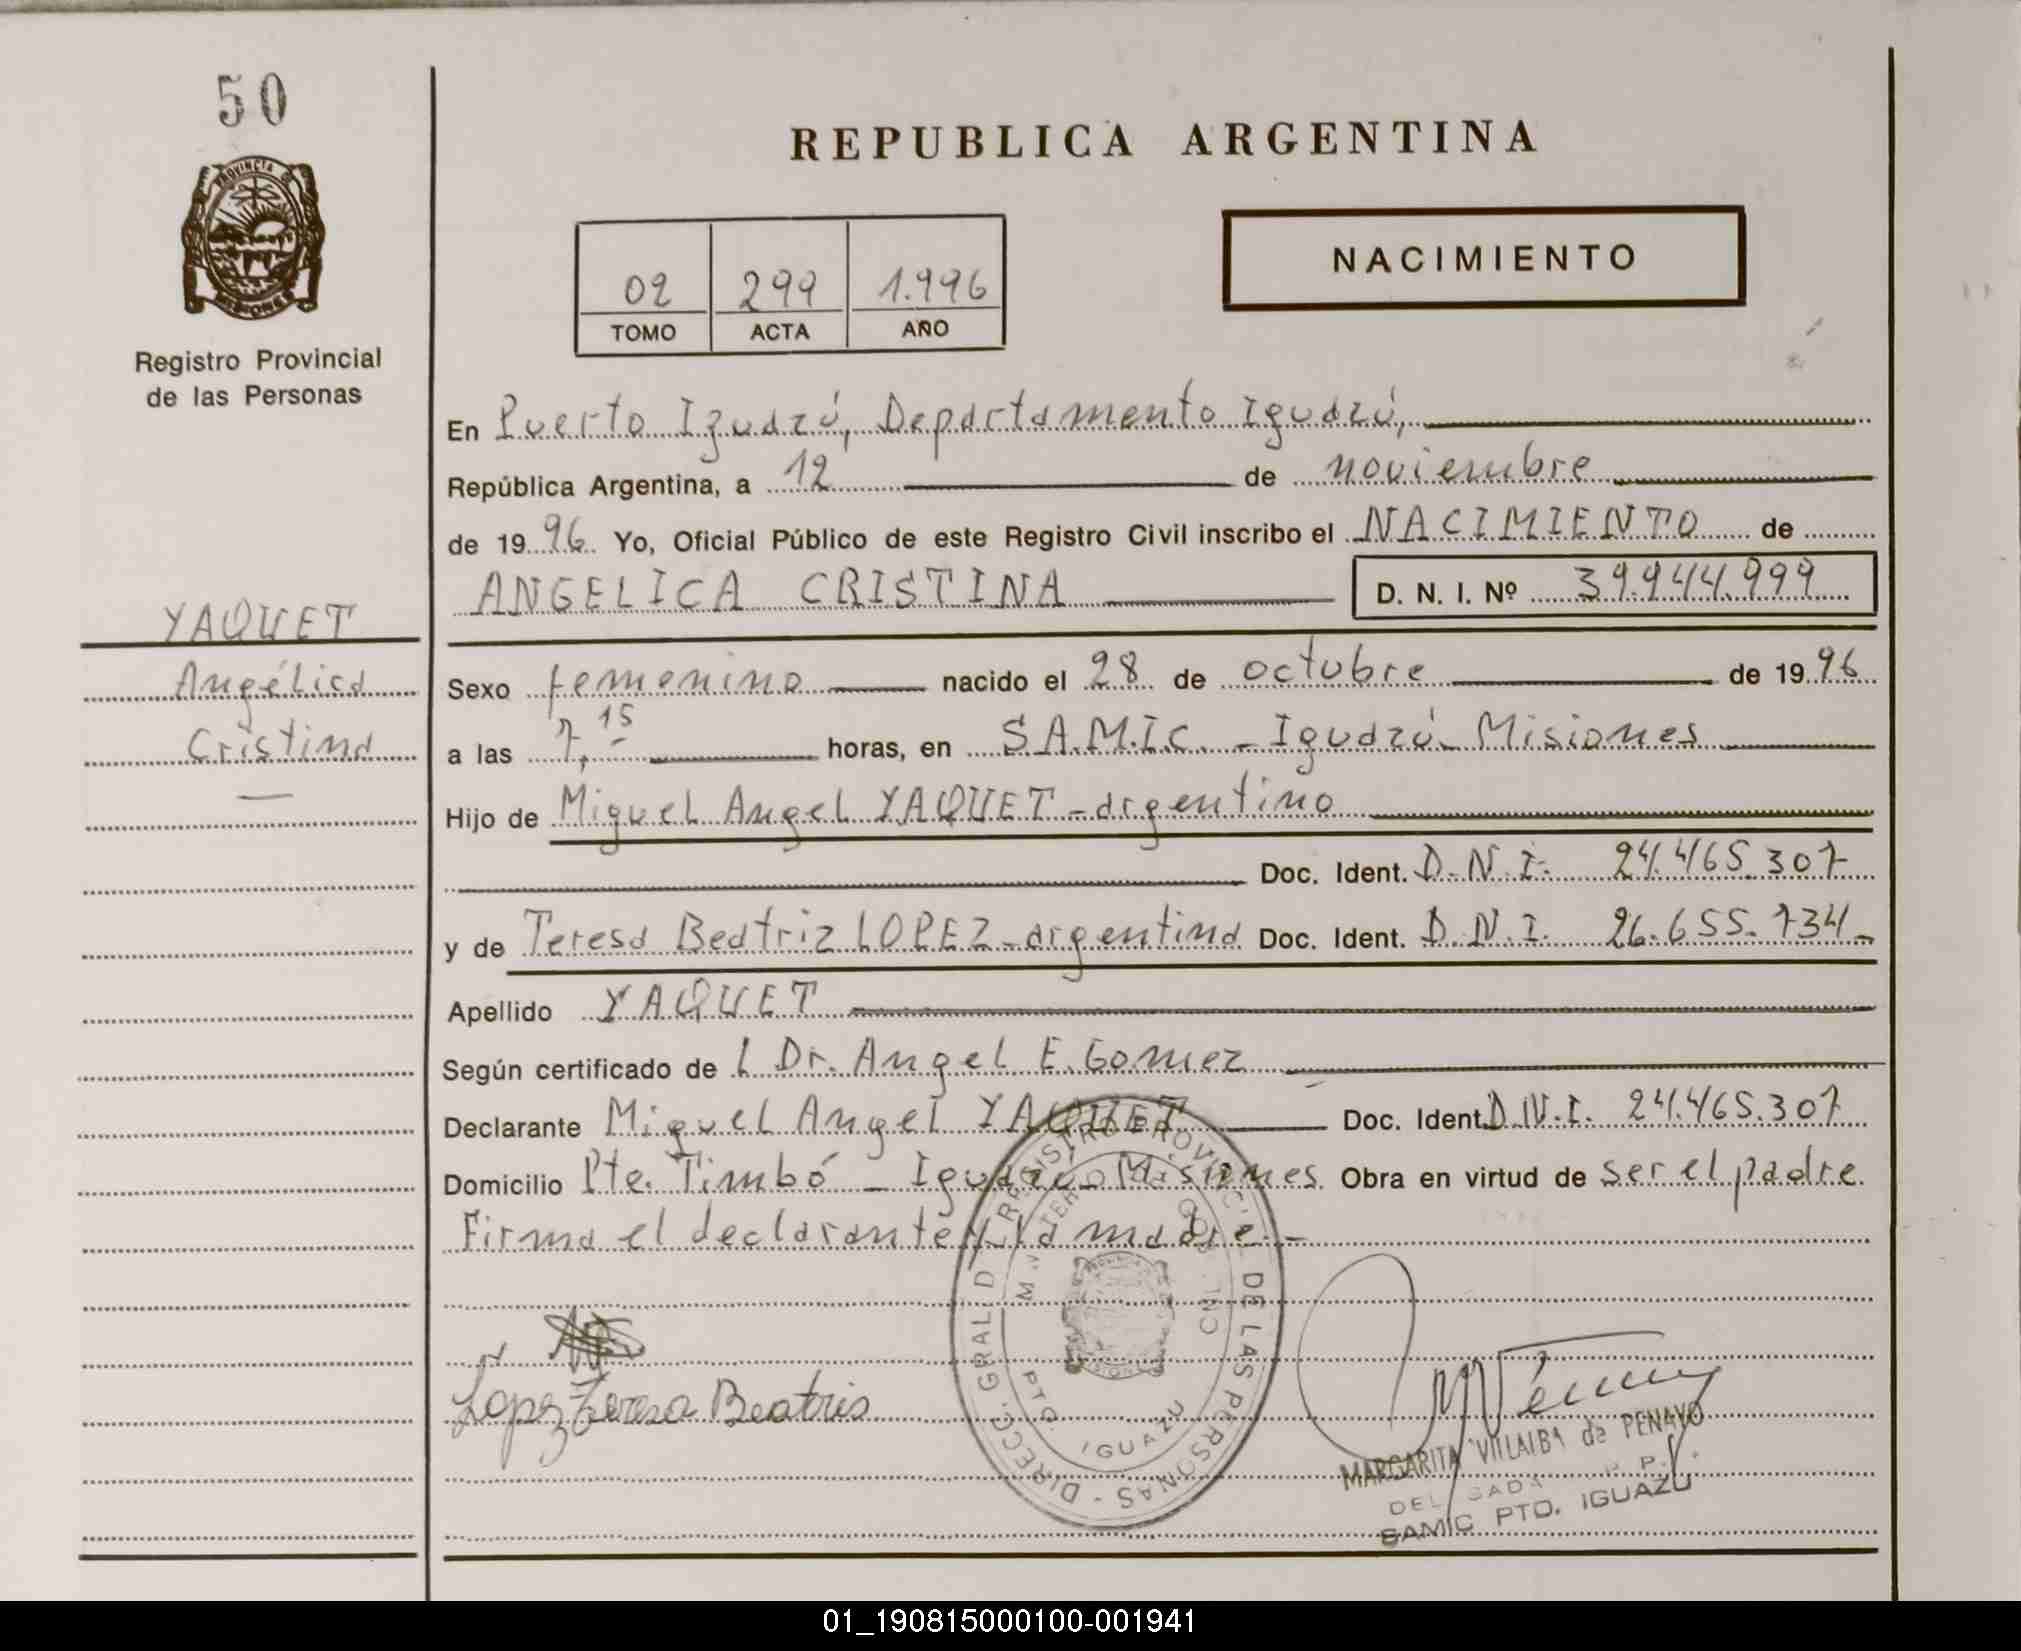 50
REPUBLICA ARGENTINA
NACIMIENTO
02 299 1.996
TOMO ACTA AÑO
Registro Provincial
de las Personas
En Puerto Iguazú, Departamento Iguazú,
República Argentina, a 12 de noviembre
de 1996 Yo, Oficial Público de este Registro Civil inscribo el NACIMIENTO de
ANGELICA CRISTINA D. N. I. Nº 39.944.999
YAQUET
Angélica
Cristina
Sexo femenino nacido el 28 de octubre de 1996
a las 7,15 horas, en S.A.M.I.C. - Iguazú - Misiones
Hijo de Miguel Angel YAQUET - argentino
Doc. Ident. D.N.I. 24.465.307
y de Teresa Beatriz LOPEZ - argentina Doc. Ident. D.N.I. 26.655.734-
Apellido YAQUET
Según certificado de l Dr. Angel E. Gomez
Declarante Miguel Angel YAQUET Doc. Ident. D.N.I. 24.465.307
Domicilio Pte. Timbó - Iguazú - Misiones Obra en virtud de ser el padre
Firma el declarante y la madre.-
Lopez Teresa Beatris
DIRECC. GRAL. D REGISTRO PROVINC. DE LAS PERSONAS -
PTO. IGUAZU
MARGARITA VILLALBA de PENAYO
SAMIC PTO. IGUAZU
01_190815000100-001941